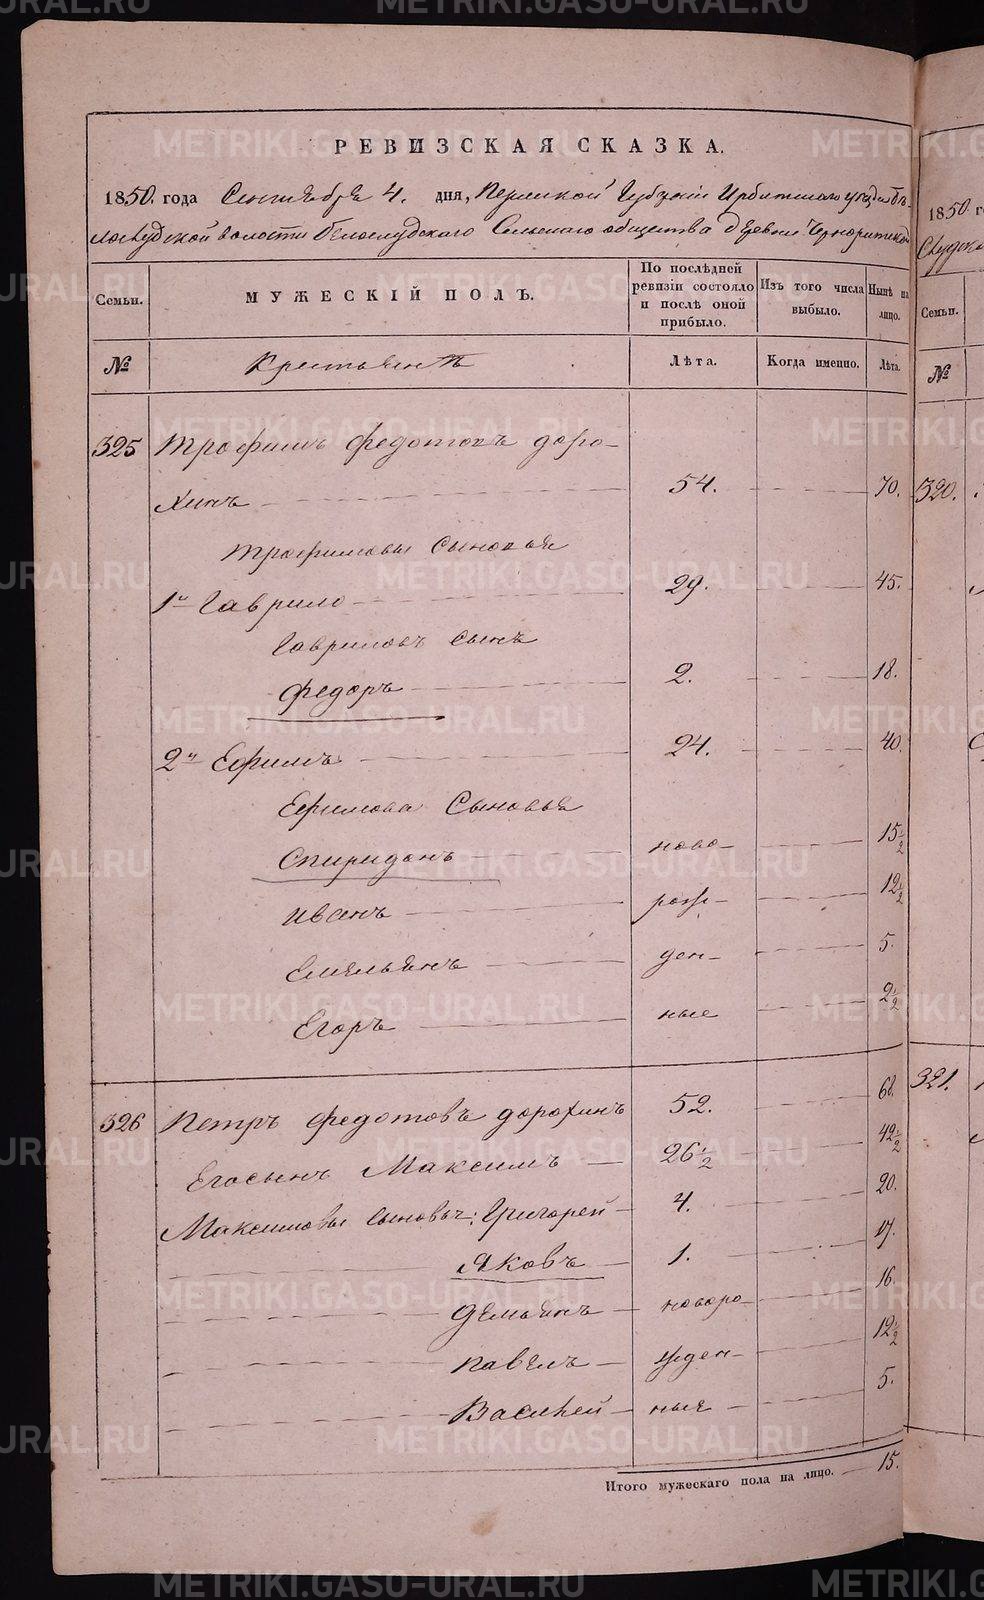 РЕВИЗСКАЯ СКАЗКА.
1850. года Сентября 4. дня, Пермской Губернiи Ирбитскаго уезда Бѣ-
лослудской волости Белослудскаго Сельскаго общества деревни
Семьи. МУЖЕСКIЙ ПОЛЪ. По послѣдней ревизiи состояло и послѣ оной прибыло. Изъ того числа выбыло. Нынѣ на лицо.
№ Крестьянъ Лѣта. Когда именно. Лѣта.
325 Трофимъ Федотовъ Доро-
хинъ 54. 70.
Трофимовы сыновья
1й Гаврило 29. 45.
Гавриловъ сынъ
Федоръ 2. 18.
2й Ефимъ 24. 40.
Ефимова Сыновья
Спиридонъ ново- 15½
Иванъ рож- 12½
Емельянъ ден- 5.
Егоръ ные 2½
326 Петръ Федотовъ Дорохинъ 52. 68.
Его сынъ Максимъ 26½ 42½
Максимовы сыновья: Григорей 4. 20.
Яковъ 1. 17.
Демьянъ новоро- 16.
Павелъ жден- 12½
Василей ные 5.
Итого мужескаго пола на лицо. 15.
1850. г
Семьи.
№
320.
321.
METRIKI.GASO-URAL.RU